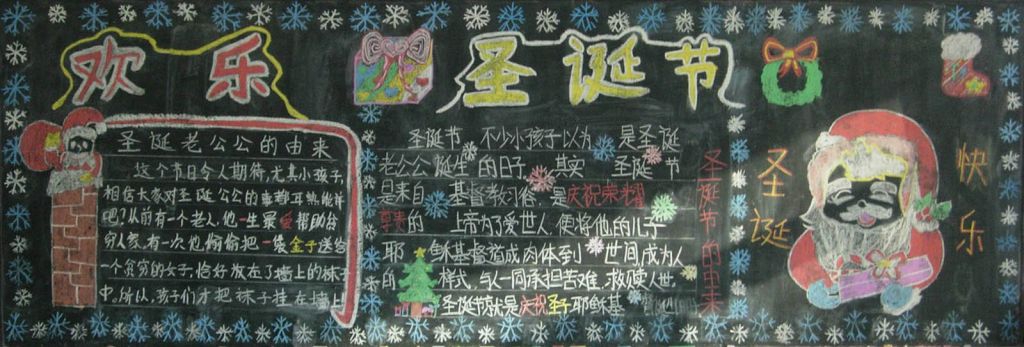 欢乐
圣诞节
圣诞老公公的由来
这个节日令人期待,尤其小孩子
相信大家对圣诞公公的故事耳熟能详
吧?从前有一个老人,他一生最爱帮助贫
穷人家,有一次他偷偷把一袋金子送给
一个贫穷的女子,恰好放在了墙上的袜子
中。所以,孩子们才把袜子挂在墙上
圣诞节 不少小孩子以为 是圣诞
老公公诞生的日子,其实 圣诞节
是来自 基督教习俗 是庆祝荣耀
尊贵的 上帝为了爱世人 便将他的儿子
耶稣基督道成肉体到 世间成为人
的 样式 与人一同承担苦难,救赎人世
圣诞节就是庆祝圣子耶稣基
圣诞节的由来
圣诞
快乐